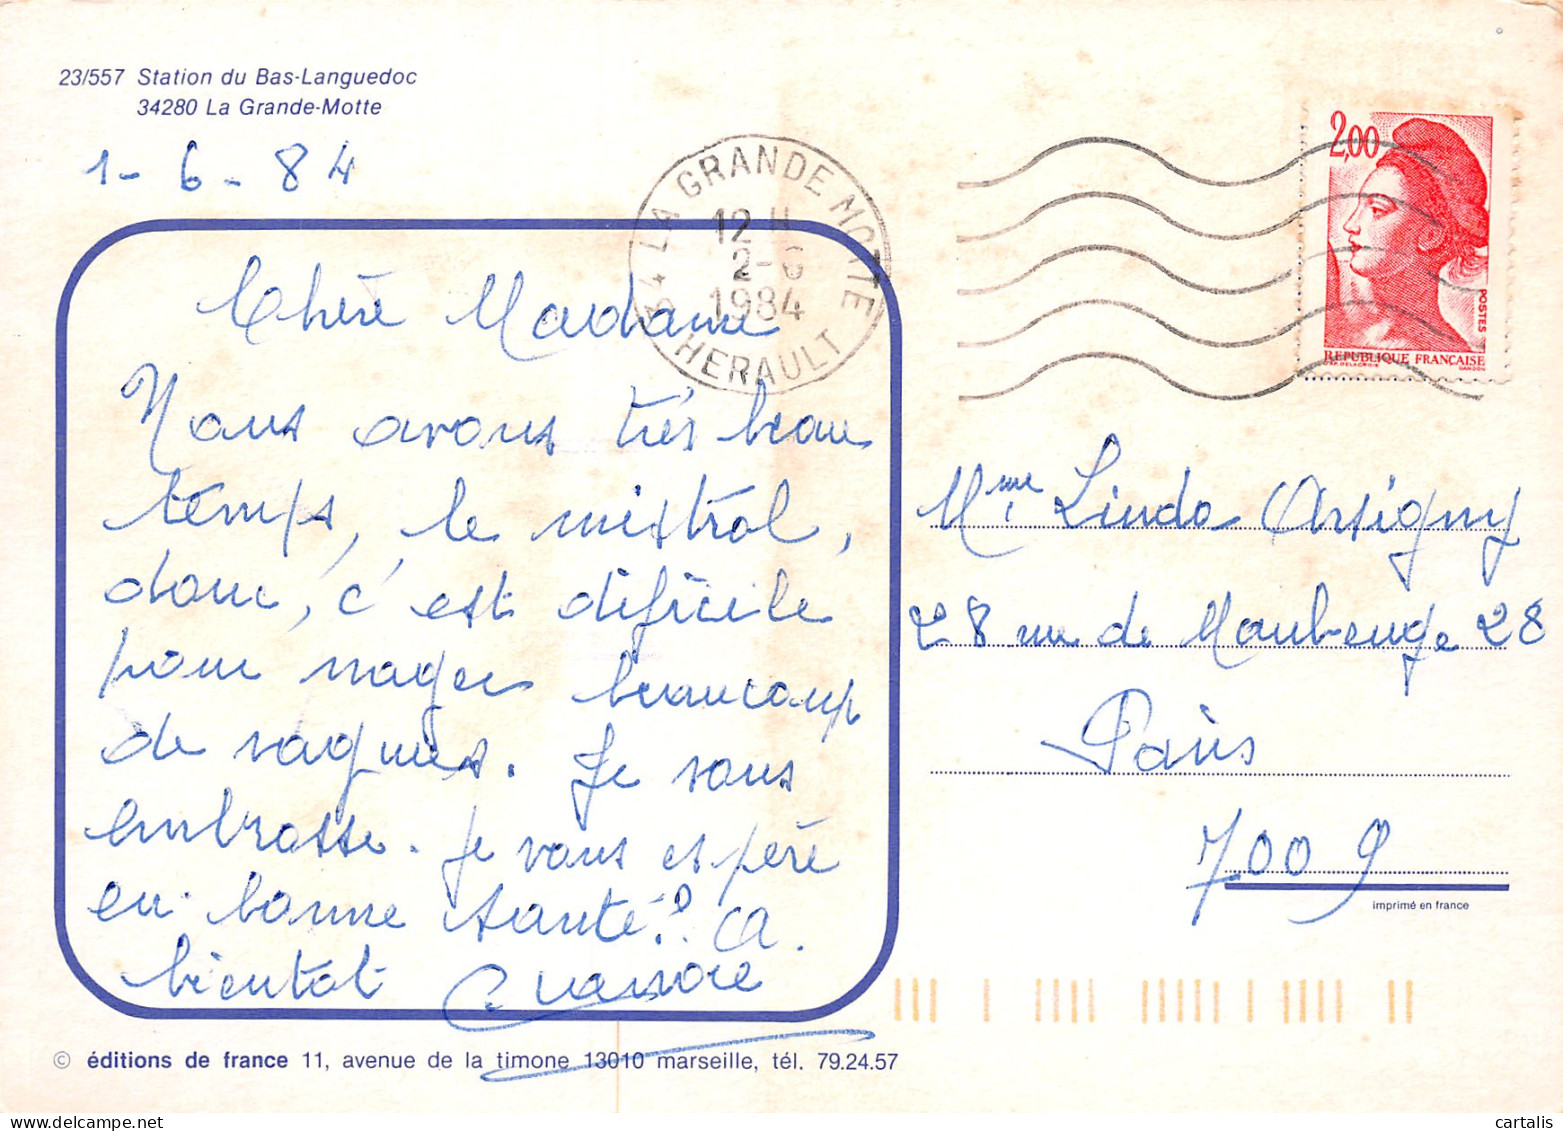 23/557 Station du Bas-Languedoc
34280 La Grande-Motte
1-6-84
34 LA GRANDE MOTTE
12 H
2-6
1984
HERAULT
2,00
POSTES
REPUBLIQUE FRANÇAISE
GANDON
Chère Madame
Nous avons très beau
temps, le mistrol,
donc, c'est dificile
pour nager beaucoup
de vagues. Je vous
embrasse. Je vous espéré
en bonne santé? a
bientot
Mme Linda Arsigny
28 rue de Maubeuge 28
Paris
7009
imprimé en france
© éditions de france 11, avenue de la timone 13010 marseille, tél. 79.24.57
cartalis